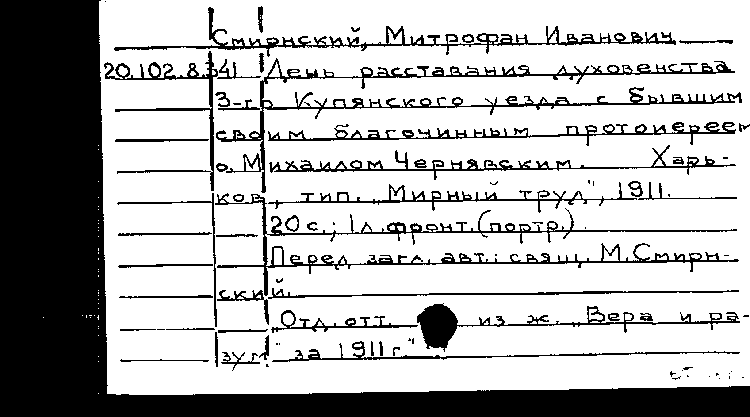 Смирнский, Митрофан Иванович
20.102.8.341 День расставания духовенства
3-го Купянского уезда с бывшим
своим благочинным протоиереем
о. Михаилом Чернявским. Харь-
ков, тип. "Мирный труд", 1911.
20 с.; 1 л. фронт. (портр.)
Перед загл. авт.: свящ. М. Смирн-
ский.
"Отд. отт. из ж. "Вера и ра-
зум" за 1911 г."